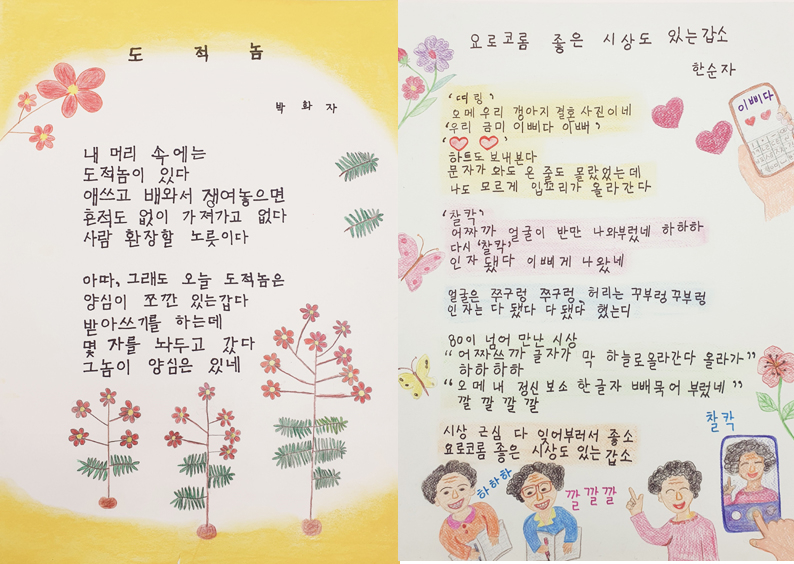 도 적 놈
박 화 자
내 머리 속에는
도적놈이 있다
애쓰고 배와서 쟁여놓으면
흔적도 없이 가져가고 없다
사람 환장할 노릇이다
아따, 그래도 오늘 도적놈은
양심이 쪼깐 있는갑다
받아쓰기를 하는데
몇 자를 놔두고 갔다
그놈이 양심은 있네
요로코롬 좋은 시상도 있는갑소
한순자
'띠링'
오메 우리 갱아지 결혼 사진이네
'우리 금미 이삐다 이뻐'
'♥ ♥'
하트도 보내본다
문자가 와도 온 줄도 몰랐었는데
나도 모르게 입꼬리가 올라간다
'찰칵'
어찌까 얼굴이 반만 나와부렀네 하하하
다시 '찰칵'
인자 됐다 이삐게 나왔네
얼굴은 쭈구렁 쭈구렁, 허리는 꾸부렁 꾸부렁
인자는 다 됐다 다 됐다 했는디
80이 넘어 만난 시상
"어찌쓰까 글자가 막 하늘로올라간다 올라가"
하하하하
"오메 내 정신 보소 한글자 빼묵어 부렀네"
깔 깔 깔 깔
시상 근심 다 잊어부러서 좋소
요로코롬 좋은 시상도 있는갑소
이삐다
하하하
깔깔깔
찰칵